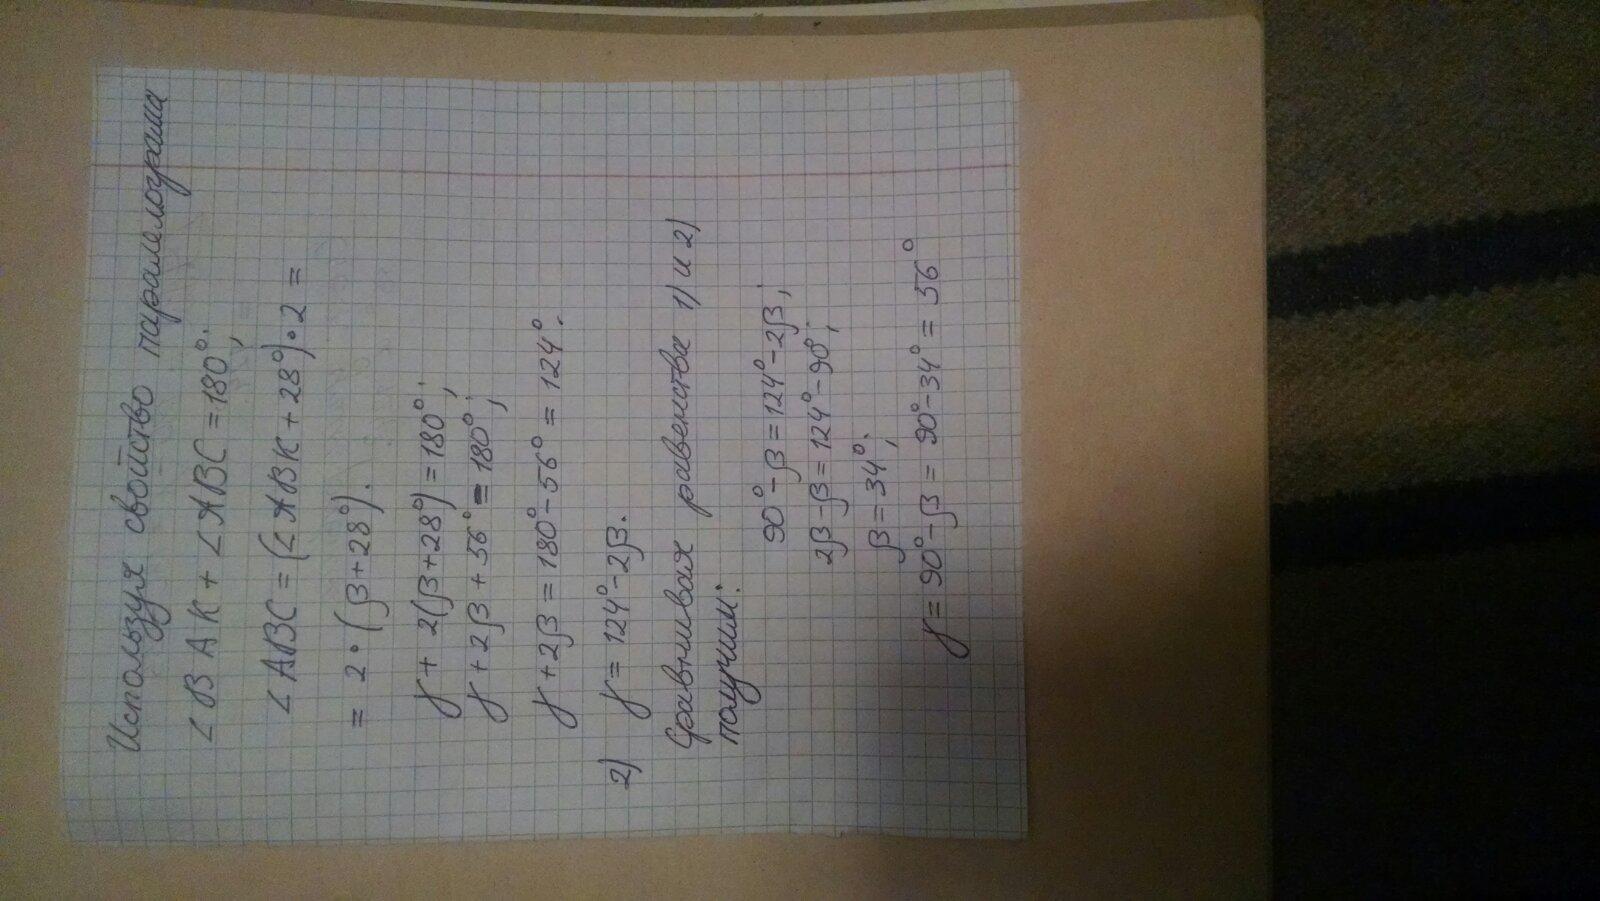 Используя свойство паралелограма
∠BAK + ∠ABC = 180°;
∠ABC = (∠ABK + 28°)·2 =
= 2·(β+28°).
γ + 2(β+28°) = 180°;
γ + 2β + 56° = 180°;
γ + 2β = 180° - 56° = 124°.
2) γ = 124° - 2β.
Сравнивая равенства 1) и 2)
получим:
90° - β = 124° - 2β;
2β - β = 124° - 90°;
β = 34°;
γ = 90° - β = 90° - 34° = 56°